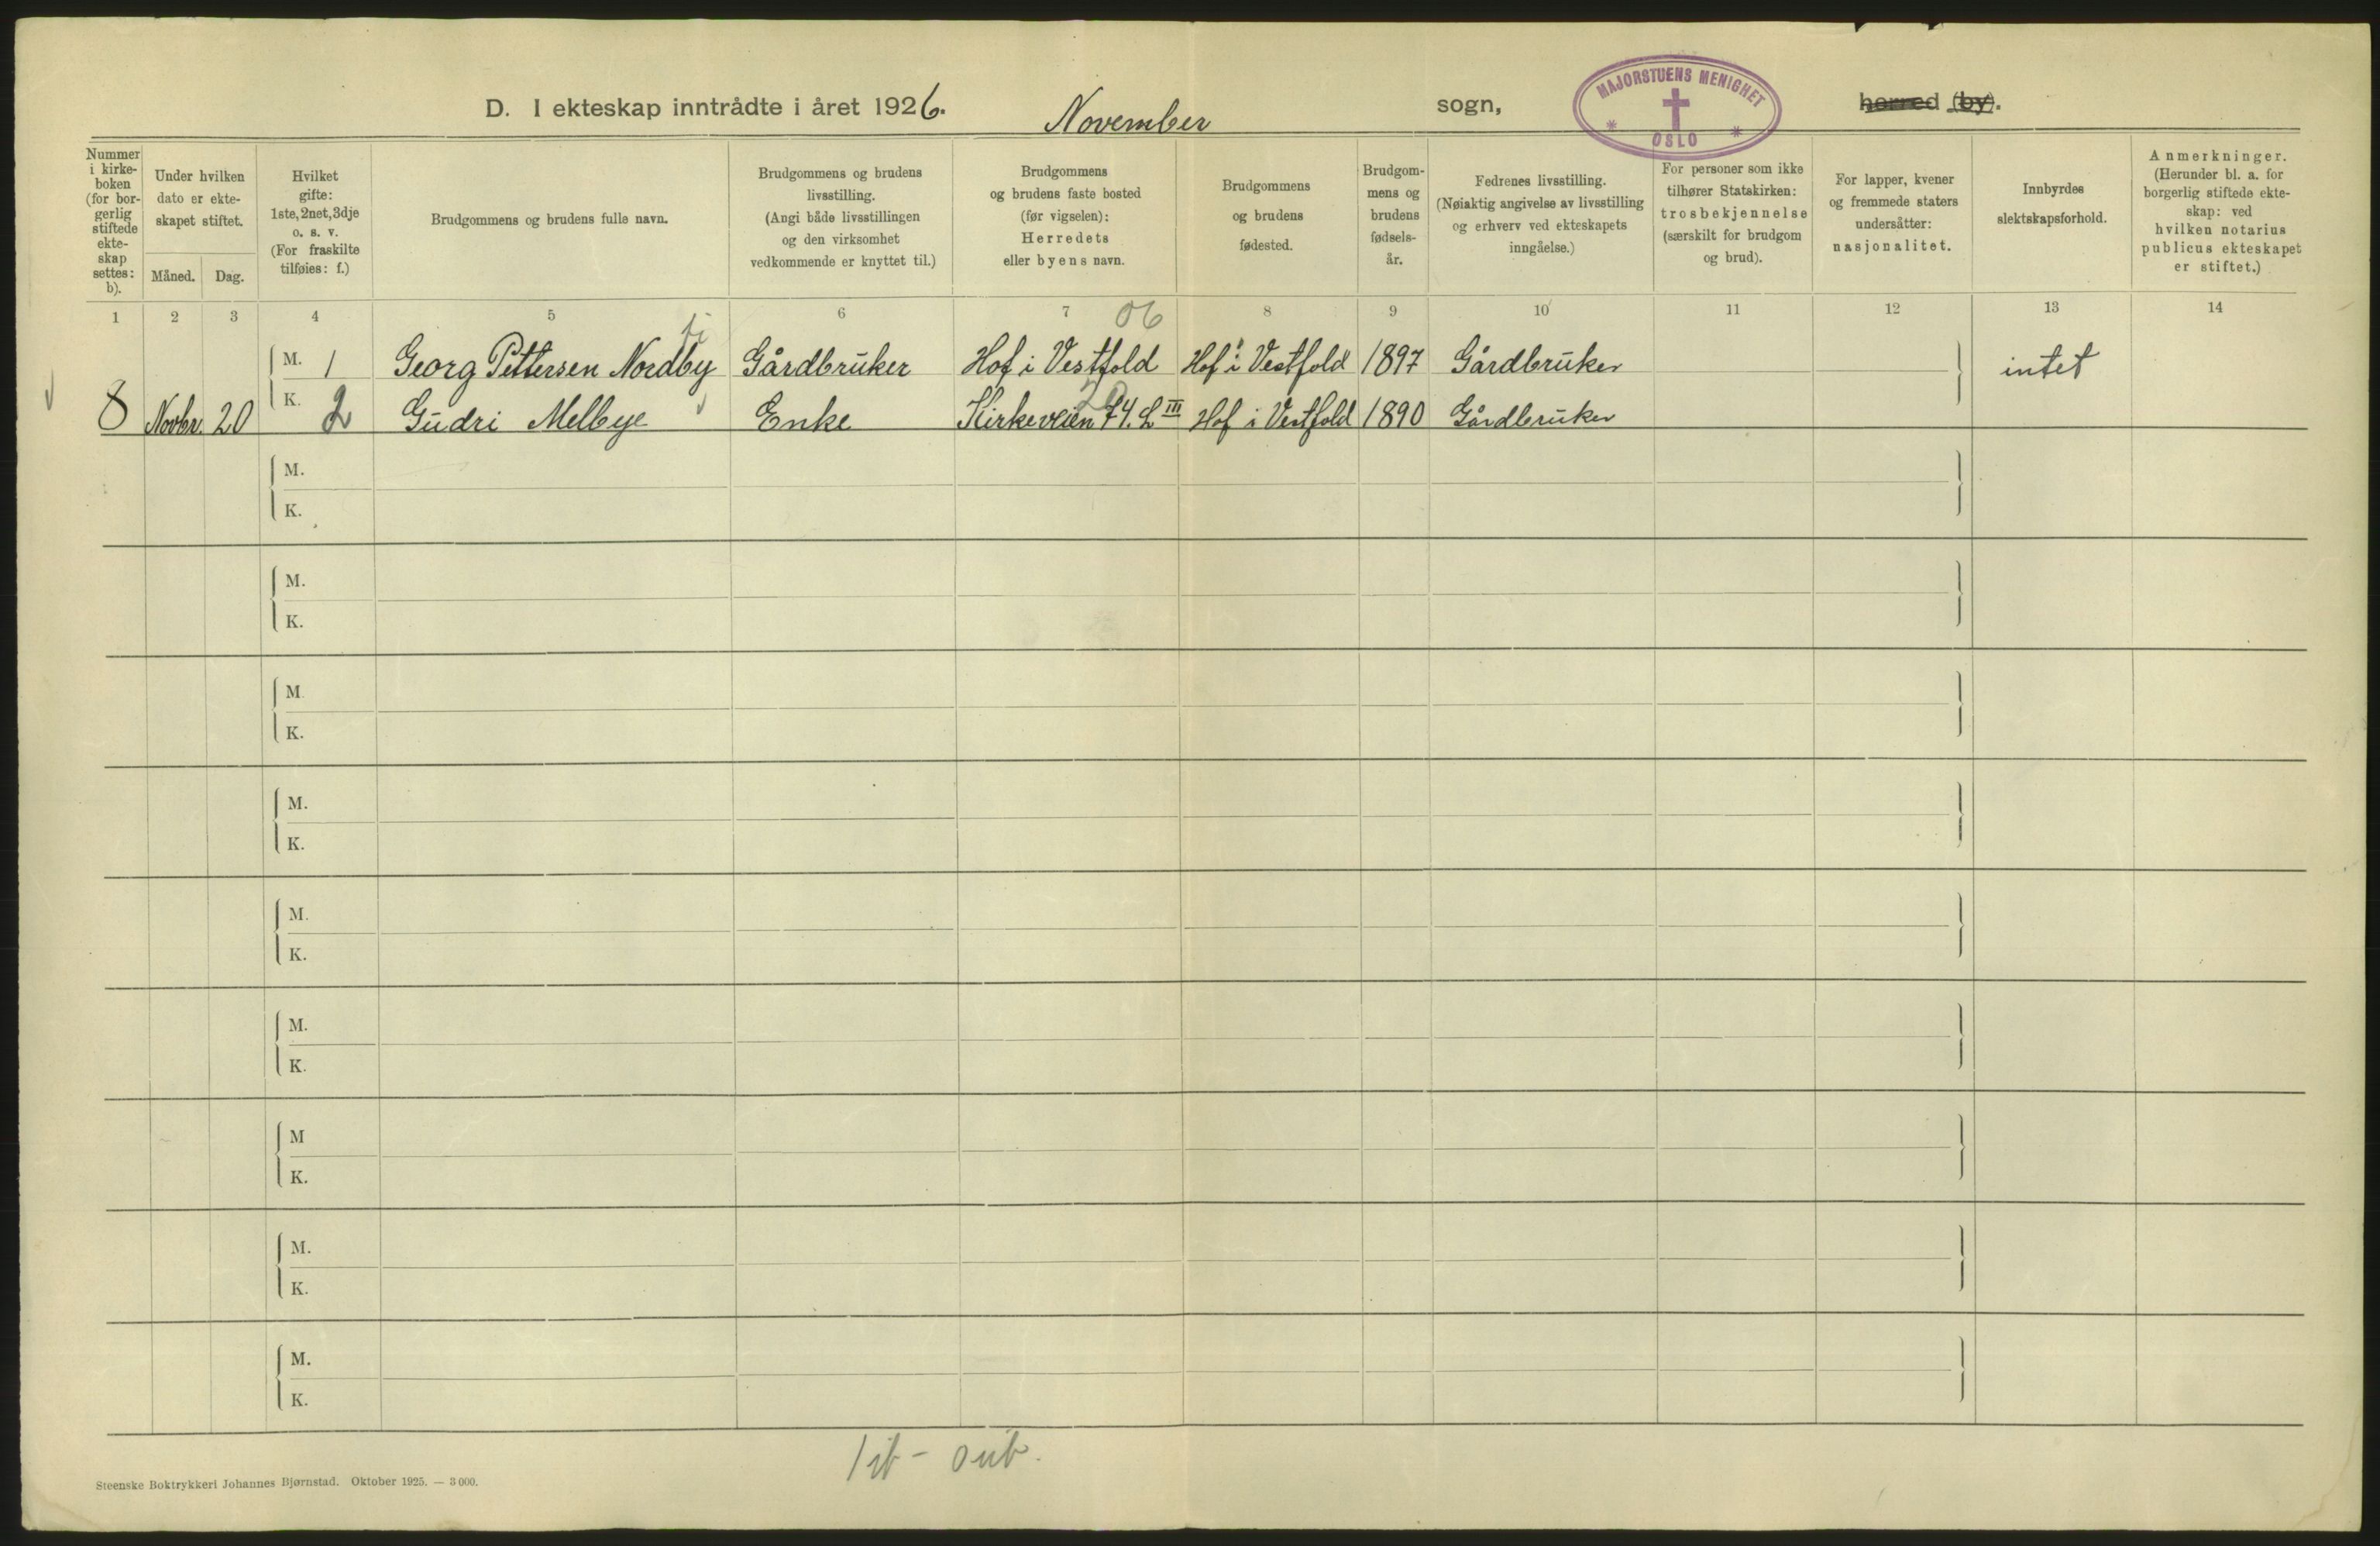 D. I ekteskap inntrådte i året 1926. November sogn, herred (by).
MAJORSTUENS MENIGHET
OSLO
Nummer
i kirke-
boken
(for bor-
gerlig
stiftede
ekte-
skap
settes:
b).
Under hvilken
dato er ekte-
skapet stiftet.
Måned. Dag.
Hvilket
gifte:
1ste, 2net, 3dje
o. s. v.
(For fraskilte
tilføies: f.)
Brudgommens og brudens fulle navn.
Brudgommens og brudens
livsstilling.
(Angi både livsstillingen
og den virksomhet
vedkommende er knyttet til.)
Brudgommens
og brudens faste bosted
(før vigselen):
Herredets
eller byens navn.
Brudgommens
og brudens
fødested.
Brudgom-
mens og
brudens
fødsels-
år.
Fedrenes livsstilling.
(Nøiaktig angivelse av livsstilling
og erhverv ved ekteskapets
inngåelse.)
For personer som ikke
tilhører Statskirken:
trosbekjennelse
(særskilt for brudgom
og brud).
For lapper, kvener
og fremmede staters
undersåtter:
nasjonalitet.
Innbyrdes
slektskapsforhold.
Anmerkninger.
(Herunder bl. a. for
borgerlig stiftede ekte-
skap: ved
hvilken notarius
publicus ekteskapet
er stiftet.)
1 2 3 4 5 6 7 8 9 10 11 12 13 14
06
M. 1 Georg Pettersen Nordby Gårdbruker Hof i Vestfold Hof i Vestfold 1897 Gårdbruker intet
20
8 Novbr. 20 K. 2 Gudri Melbye Enke Kirkeveien 74. L III Hof i Vestfold 1890 Gårdbruker
M.
K.
M.
K.
M.
K.
M.
K.
M.
K.
M.
K.
M
K.
M.
K.
M.
K.
Steenske Boktrykkeri Johannes Bjørnstad. Oktober 1925. — 3 000.